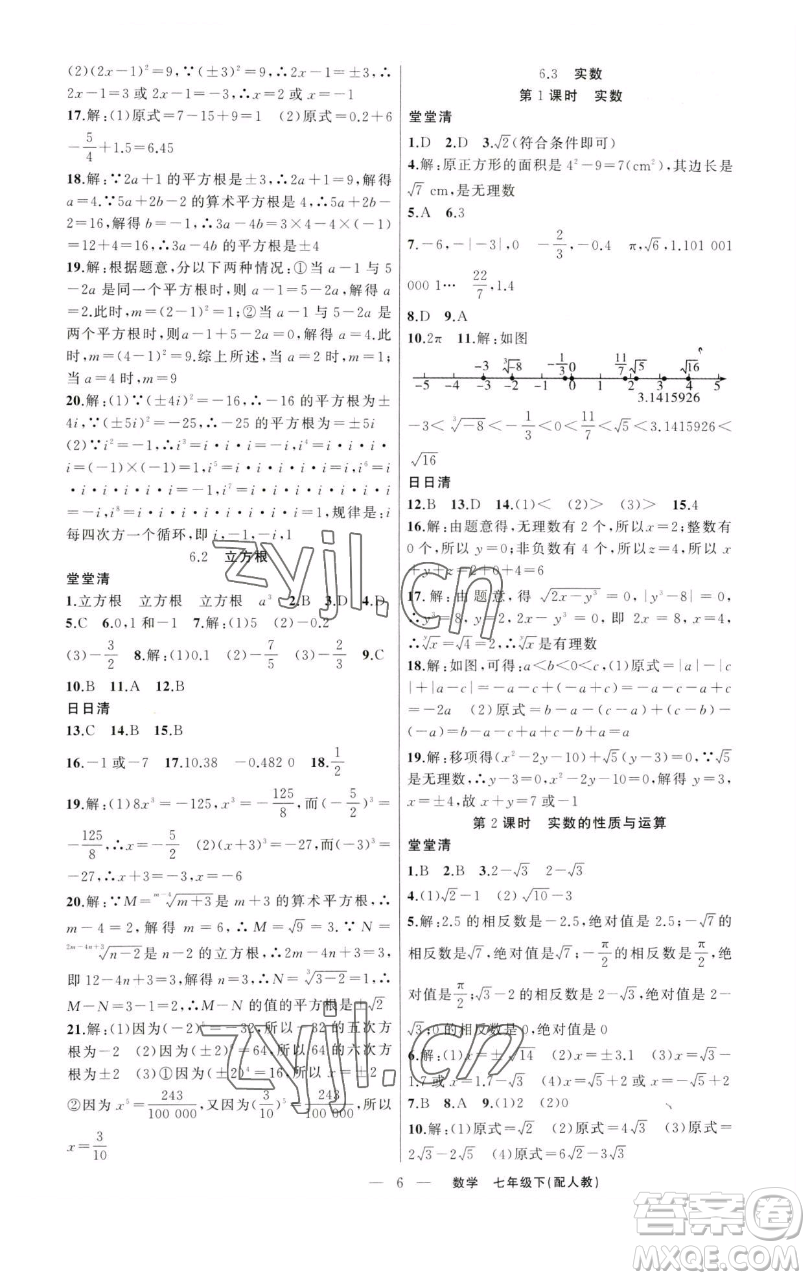 (2)(2x-1)²=9,∵(±3)²=9,∴2x-1=±3,∴
2x-1=3或2x-1=-3,∴x=2或x=-1
17.解:(1)原式=7-15+9=1 (2)原式=0.2+6
-5/4+1.5=6.45
18.解:∵2a+1的平方根是±3,∴2a+1=9,解得
a=4.∵5a+2b-2的算术平方根是4,∴5a+2b-
2=16,解得b=-1,∴3a-4b=3×4-4×(-1)
=12+4=16,∴3a-4b的平方根是±4
19.解:根据题意,分以下两种情况:①当a-1与5
-2a是同一个平方根时,则a-1=5-2a,解得a
=2.此时,m=(2-1)²=1;②当a-1与5-2a是
两个平方根时,则a-1+5-2a=0,解得a=4.此
时,m=(4-1)²=9.综上所述,当a=2时,m=1;
当a=4时,m=9
20.解:(1)∵(±4i)²=-16,∴-16的平方根为±
4i.∵(±5i)²=-25,∴-25的平方根为=±5i
(2)∵i³=i²·i=-1·i=-i,i⁴=i·i·i·
i=(-1)×(-1)=1,i⁵=i·i·i·i·i=i,i⁶=i
·i·i·i·i·i=-1,i⁷=i·i·i·i·i·i·i
=-i,i⁸=i·i·i·i·i·i·i·i=1,规律是:i
每四次方一个循环,即i,-1,-i,1
6.2 立方根
堂堂清
1.立方根 立方根 立方根 a³ 2.B 3.D 4.D
5.C 6.0,1和-1 7.解:(1)5 (2)-0.2
(3)-3/2 8.解:(1)-2 (2)-7/5 (3)-2/3 9.C
10.B 11.A 12.B
日日清
13.C 14.B 15.B
16.-1或-7 17.10.38 -0.482 0 18.1/2
19.解:(1)8x³=-125,x³=-125/8,而(-5/2)³=
-125/8,∴x=-5/2 (2)(x+3)³=-27,而(-3)³=
-27,∴x+3=-3,∴x=-6
20.解:∵M=ᵐ⁻⁴√(m+3)是m+3的算术平方根,∴
m-4=2,解得m=6,∴M=√9=3.∵N=
²ᵐ⁻⁴ⁿ⁺³√(n-2)是n-2的立方根,∴2m-4n+3=3,
即12-4n+3=3,解得n=3,∴N=³√(3-2)=1,∴
M-N=3-1=2,∴M-N的值的平方根是±√2
21.解:(1)因为(-2)⁵=-32,所以-32的五次方
根为-2 (2)因为(±2)⁶=64,所以64的六次方
根为±2 (3)①因为(±2)⁴=16,所以x=±2
②因为x⁵=243/100 000,又因为(3/10)⁵=243/100 000,所以
x=3/10
6.3 实数
第1课时 实数
堂堂清
1.D 2.D 3.√2(符合条件即可)
4.解:原正方形的面积是4²-9=7(cm²),其边长是
√7 cm,是无理数
5.A 6.3
7.-6,-|-3|,0 -2/3,-0.4 π,√6,1.101 001
000 1… 22/7,1.4
8.D 9.A
10.2π 11.解:如图
-3 ³√-8 -1/3 0 11/7 √5 √16
-5 -4 -3 -2 -1 0 1 2 3 4 5
3.1415926
-3<³√-8<-1/3<0<11/7<√5<3.1415926<
√16
日日清
12.B 13.D 14.(1)< (2)> (3)> 15.4
16.解:由题意得,无理数有2个,所以x=2;整数有
0个,所以y=0;非负数有4个,所以z=4,所以
x+y+z=2+0+4=6
17.解:由题意,得√(2x-y³)=0,|y³-8|=0.
∴y³=8,∴2x-y³=2x-8=0,解得x=4,即
∴ʸ√x=√4=2,∴ʸ√x是有理数
18.解:如图,可得:a<b<0<c,(1)原式=|a|-|c
|+|a-c|=-a-c+(-a+c)=-a-c-a+c=
-2a (2)原式=b-a-(c-a)+(b-c)-
(-a)=b-a-c+a+b-c+a=2b-2c+a
19.解:移项得(x²-2y-10)+√5(y-3)=0,∵√5
是无理数,∴y-3=0,x²-2y-10=0,解得y=3,
x=±4,故x+y=7或-1
第2课时 实数的性质与运算
堂堂清
1.B 2.B 3.2-√3 2-√3
4.(1)√2-1 (2)√10-3
5.解:2.5的相反数是-2.5,绝对值是2.5;-√7的
相反数是√7,绝对值是√7;-π/2的相反数是π/2,绝
对值是π/2;√3-2的相反数是2-√3,绝对值是2-
√3;0的相反数是0,绝对值是0
6.解:(1)x=±√14 (2)x=±3.1 (3)x=√3-
1.7或x=1.7-√3 (4)x=√3+√2或x=√3-√2
7.B 8.A 9.(1)2 (2)0
10.解:(1)原式=√2 (2)原式=4√3 (3)原式=
2√3-2√5 (4)原式=6√2-2√3
— 6 — 数学 七年级下(配人教)
zyjl.cn
zyjl.cn
答案圈
MXQE.COM